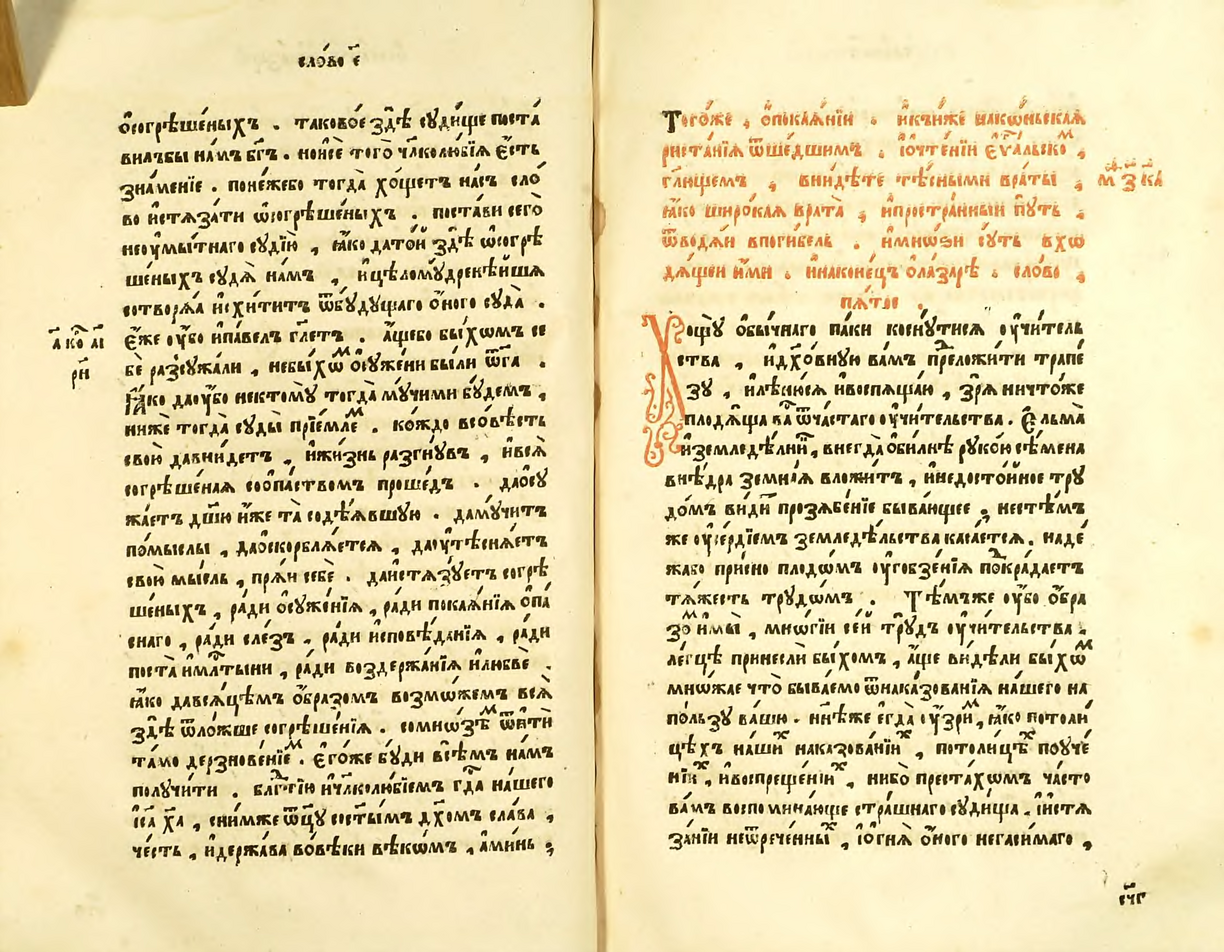 сло́во е҃
ѡ҆согрѣше́ныхъ . таково́е здѣ̀ сꙋди́ще поста́
вилъбы на́мъ бг҃ъ . но и҆се того̀ чл҃колю́бїѧ є҆́сть
зна́менїе . поне́жебо тогда̀ хо́щетъ на́съ сло́
во и҆стѧза́ти ѡ҆согрѣше́ныхъ . поста́ви сего̀
неоумы́тнаго сꙋдїю̀ , ꙗ҆́ко да то́й здѣ̀ ѡ҆согрѣ
ше́ныхъ сꙋдѧ̀ на́мъ , и҆цѣломꙋ́дренѣйшѧ
сотворѧ́ѧ и҆схи́титъ ѿбꙋ́дꙋщаго ѻ҆́ного сꙋда̀ .
є҆́же оу҆́бо и҆па́вел гл҃етъ . а҆́щебо бы́хомъ се
бѐ разсꙋжа́ли , небы́хѡм ѡ҆сꙋжени были ѿ бг҃а .
а҃ ко҃ а҃і
рн҃
Ꙗ҆́ко даоу҆́бо нектомꙋ̀ тогда̀ мꙋ́чими бꙋ́демъ ,
ниже тогда̀ сꙋды̀ прїе́млем . ко́ждо всо́вѣсть
свою̀ давни́детъ , и҆жи́знь разгнꙋ́въ , и҆всѧ̀
согрѣше́наѧ соопа́ствомъ проше́дъ . даѡ҆сꙋ
жа́етъ дш҃ꙋ и҆́же та̀ содѣ́ѧвшꙋю . дамꙋ́читъ
по́мыслы , даѡ҆скорблѧ́етсѧ , даоу҆тѣснѧ́етъ
сво́й мы́сль , прѧ́и себѐ . даи҆стѧзꙋ́етъ согрѣ
ше́ныхъ , ра́ди ѡ҆сꙋже́нїѧ , ра́ди покаѧ́нїѧ ѻ҆па́
снаго , ра́ди сле́зъ , ра́ди и҆сповѣ́данїѧ , ра́ди
поста̀ и҆мл҃тыни , ра́ди воздержа́нїѧ и҆любвѐ .
ꙗ҆́ко давсѧ́цѣмъ ѻ҆́бразомъ возмо́жемъ всѧ̀
здѣ̀ ѿло́жше согрѣше́нїѧ . сомно́зѣм ѿити
та́мо дерзнове́нїем . є҆го́же бꙋ́ди всѣ́мъ на́мъ
полꙋчи́ти . благⷣтїю и҆чл҃колю́бїемъ гдⷭ҇а на́шего
і҆с҃а хр҇а , снимже ѿц҃ꙋ состы́мъ дх҃омъ сла́ва ,
че́сть , и҆держа́ва вове́ки вѣкѡ́мъ , а҆ми́нь ,
Того́же , ѻ҆покаѧ́нїи . и҆къни́же наконьскаѧ
риста́нїѧ ѿше́дшимъ . і҆ѻ҆чте́нїи є҆ѵⷢальском ,
гл҃щемъ , вни́дѣте тѣ́сными враты̀ ,
м҃ з҃ к҃а
ꙗ҆́ко широ́каѧ врата̀ , и҆простра́нныи пꙋть ,
ѿводѧ́и впоги́бель . и҆мно́ѕи сꙋ́ть вхо
дѧ́щеи и҆́ми . и҆наконе́цъ ѻ҆ла́зарѣ . сло́во ,
пѧ́тое .
Хощꙋ̀ ѻ҆бы́чнаго па́ки коснꙋ́тисѧ оу҆чи́тель
ства , и҆дх҃о́внꙋю ва́мъ преⷣложи́ти трапе́
зꙋ , и҆лѣню́сѧ и҆воспѧща́ю , зрѧ̀ ничто́же
плодѧ́ща ва́съ ѿча́стаго оу҆чи́тельства . Е҆льма̀
и҆земледѣ́лнїи , внегда̀ ѻ҆би́лнѣ рꙋко́ю сѣ́мена
внѣ́дра земна́ѧ вло́житъ , и҆недосто́йное трꙋ
до́мъ ви́дитъ прозѧбе́нїе быва́ющее , нестѣ́мъ
же оу҆се́рдїемъ земледѣ́льства каса́етсѧ . наде́
жабо при́сно плодо́мъ оу҆гобзе́нїѧ покра́даетъ
тѧ́жесть трꙋдѡ́мъ . Тѣ́мъже оу҆́бо ѻ҆бра
зом и҆мы̀ , мно́гїи се́й трꙋ́дъ оу҆чи́тельства .
ле́гцѣ принеслѝ бы́хомъ , а҆́ще ви́дѣли бы́хѡм
мно́жае что̀ быва́емо ѿнаказова́нїѧ на́шего на
по́льзꙋ ва́шю . нн҃ѣже е҆гда̀ оу҆́зрим , ꙗ҆́ко потоли́
цѣхъ на́шихъ наказова́нїихъ , потоли́цѣхъ поꙋче́
нїихъ , и҆воспреще́нїихъ , ни́бо преста́хомъ ча́сто
ва́мъ воспомина́юще стра́шнаго сꙋди́ща . і҆истѧ
за́нїи неѿрече́нныхъ , і҆ѻ҆гнѧ̀ ѻ҆́ного негаси́маго ,
сч҃г